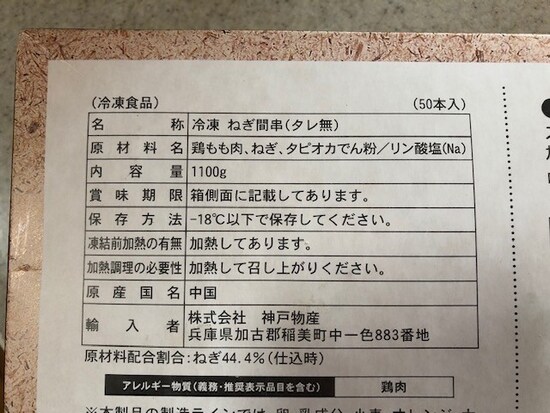 (冷凍食品) (50本入)
名称 冷凍 ねぎ間串(タレ無)
原材料名 鶏もも肉、ねぎ、タピオカでん粉／リン酸塩(Na)
内容量 1100g
賞味期限 箱側面に記載してあります。
保存方法 -18℃以下で保存してください。
凍結前加熱の有無 加熱してあります。
加熱調理の必要性 加熱して召し上がりください。
原産国名 中国
輸入者 株式会社 神戸物産
兵庫県加古郡稲美町中一色883番地
原材料配合割合:ねぎ44.4%(仕込時)
アレルギー物質(義務・推奨表示品目を含む) 鶏肉